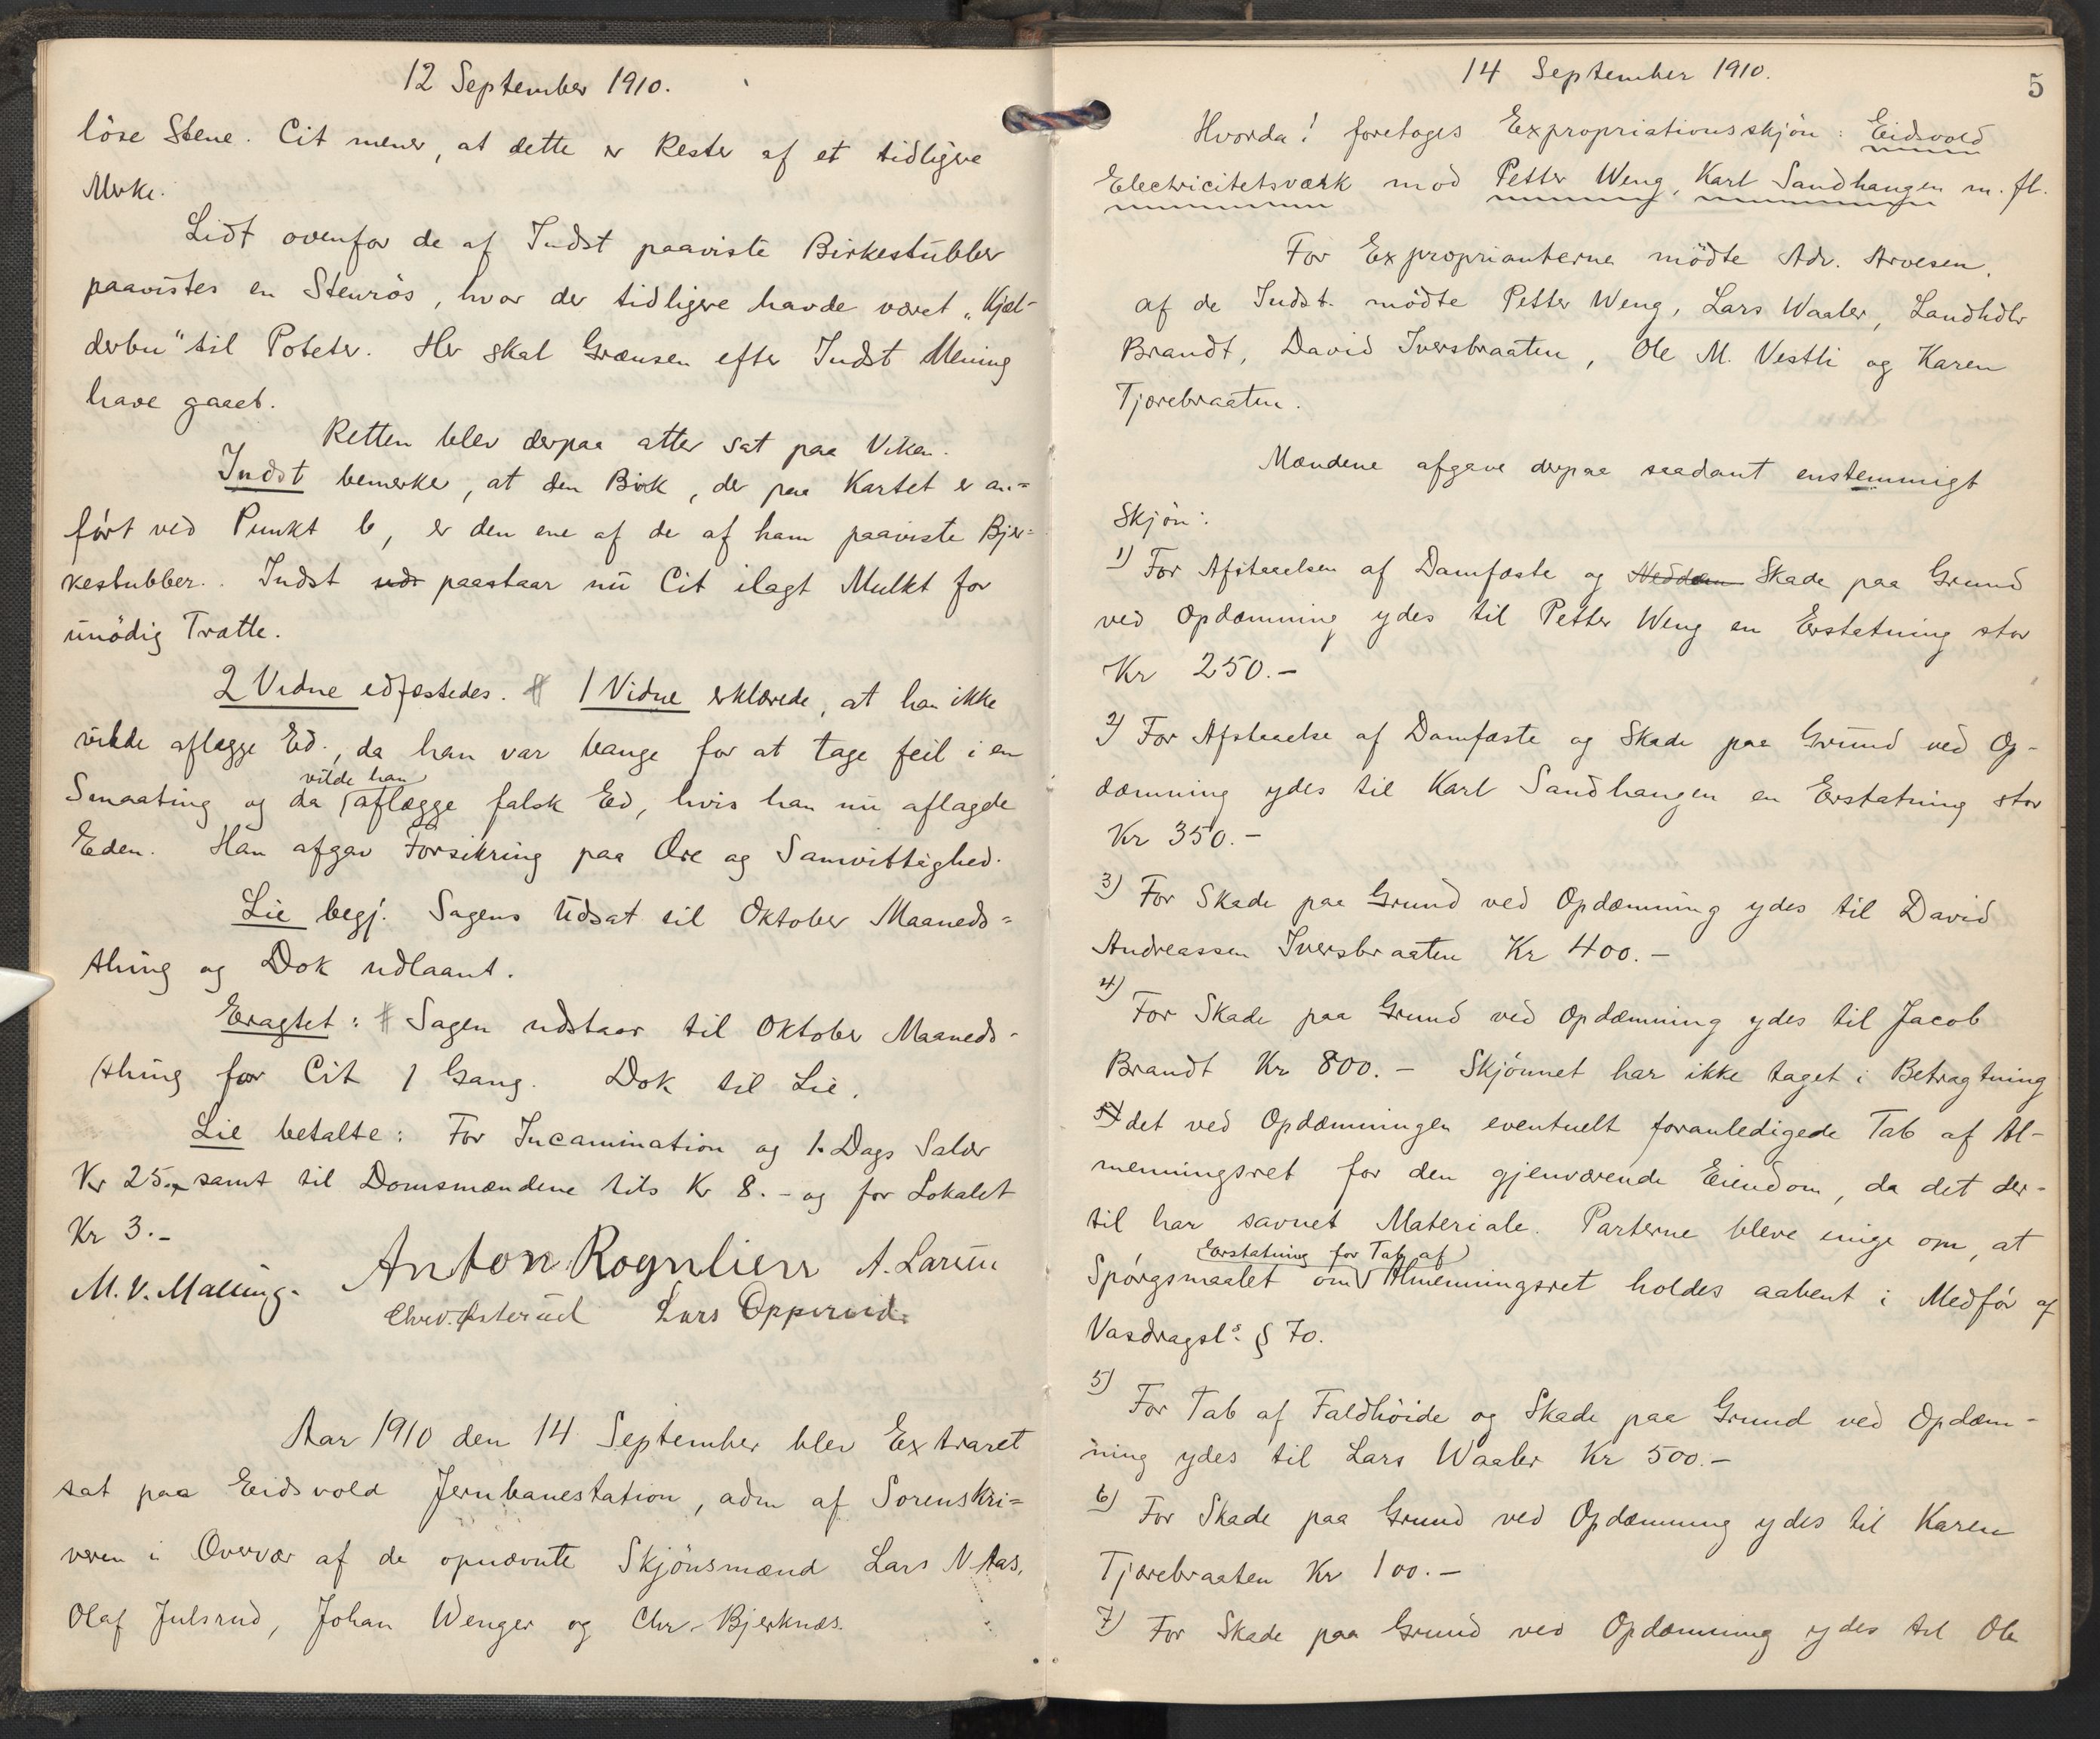 12 September 1910.
löse Stene. Cit mener, at dette er Rester af et tidligere
Merke.
Lidt ovenfor de af Indst paaviste Birkestubber
paavistes en Stenrös, hvor der tidligere havde været „Kjæl-
derbu" til Poteter. Her skal Grænsen efter Indst Mening
have gaaet.
Retten blev derpaa atter sat paa Viken.
Indst bemerker, at den Birk, der paa Kartet er an=
fört ved Punkt b, er den ene af de af ham paaviste Bjer=
kestubber. Indst paastaar nu Cit ilagt Mulkt for
unödig Trætte.
2 Vidne edfæstedes. 1 Vidne erklærede, at han ikke
vilde aflægge Ed., da han var bange for at tage feil i en
vilde han
Smaating og da aflægge falsk Ed, hvis han nu aflagde
Eden. Han afgav Forsikring paa Ære og Samvittighed.
Lie begj. Sagens Udsat til Oktober Maaneds=
thing og Dok udlaant.
Eragtet: Sagen udstaar til Oktober Maaneds-
thing for Cit 1 Gang. Dok til Lie.
Lie betalte: For Incamination og 1. Dags Salær
Kr 25.- samt til Domsmændene tils Kr 8.- og for Lokalet
Kr 3.-
M. V. Malling. Anton Rognlien A. Larsen
Chr. Østerud Lars Opperud.
Aar 1910 den 14 September blev Extraret
sat paa Eidsvold Jernbanestation, adm af Sorenskri=
veren i Overvær af de opnævnte Skjönsmænd Lars N Aas,
Olaf Julsrud, Johan Wenger og Chr. Bjerknæs.
14 September 1910.
5
Hvorda! foretoges Expropriationsskjön: Eidsvold
Electricitetsværk mod Petter Weng, Karl Sandhaugen m. fl.
For Exproprianterne mödte Adv. Arvesen.
af de Indst. mödte Petter Weng, Lars Waaler, Landhdlr
Brandt, David Iversbraaten, Ole M. Vestli og Karen
Tjærebraaten.
Mændene afgave derpaa saadant enstemmigt
Skjön:
1) For Afstaaelsen af Damfæste og Neddæm Skade paa Grund
ved Opdæmning ydes til Petter Weng en Erstatning stor
Kr 250.-
2) For Afstaaelse af Damfæste og Skade paa Grund ved Op-
dæmning ydes til Karl Sandhaugen en Erstatning stor
Kr 350.-
3) For Skade paa Grund ved Opdæmning ydes til David
Andreassen Iversbraaten Kr 400.-
4)
For Skade paa Grund ved Opdæmning ydes til Jacob
Brandt Kr 800.- Skjönnet har ikke taget i Betragtning
5) det ved Opdæmningen eventuelt foranledigede Tab af Al-
menningsret for den gjenværende Eiendom, da det der-
til har savnet Materiale. Parterne bleve enige om, at
Erstatning for Tab af
Spörgsmaalet om Almenningsret holdes aabent i Medför af
Vasdragsl. § 70.
5)
For Tab af Faldhöide og Skade paa Grund ved Opdæm-
ning ydes til Lars Waaler Kr 500.-
6)
For Skade paa Grund ved Opdæmning ydes til Karen
Tjærebraaten Kr 100.-
7) For Skade paa Grund ved Opdæmning ydes til Ole